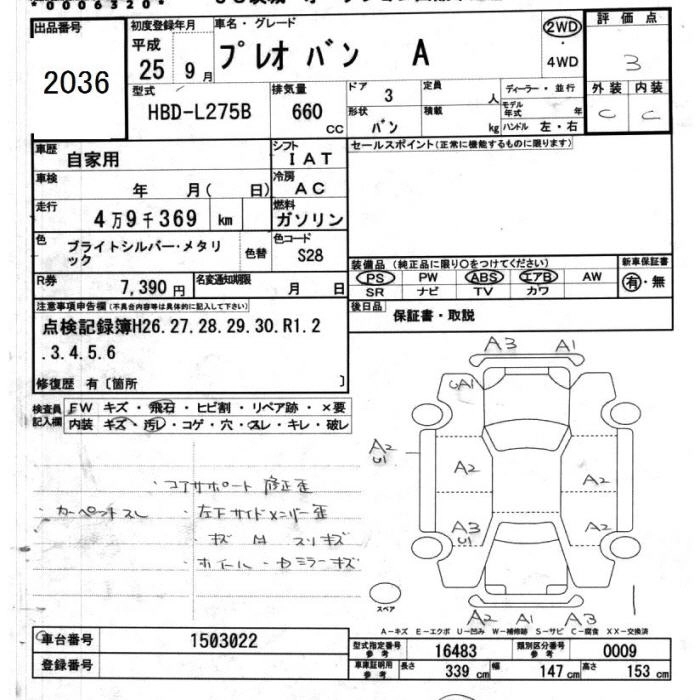 *0006320*
出品番号 2036
初度登録年月 平成 25 9月
車名・グレード プレオ バン A
2WD・4WD
評価点 3
外装 内装
C C
型式 HBD-L275B
排気量 660 cc
ドア 3
形状 バン
定員 人
積載 kg
ディーラー・並行
モデル年式 年
ハンドル 左・右
車歴 自家用
シフト IAT
セールスポイント(正常に機能するものに限ります)
車検 年 月( 日)
冷房 AC
走行 4万9千369 km
燃料 ガソリン
色 ブライトシルバー・メタリック
色替
色コード S28
装備品(純正品に限り○をつけてください)
PS PW ABS エアB AW
SR ナビ TV カワ
新車保証書 有・無
R券 7,390円
名変通知期限 月 日
後日品 保証書・取説
注意事項申告欄(不具合内容等は具体的に記入して下さい)
点検記録簿H26.27.28.29.30.R1.2
.3.4.5.6
修復歴 有〔箇所 〕
検査員記入欄
FW キズ・飛石・ヒビ割・リペア跡・×要
内装 キズ・汚レ・コゲ・穴・スレ・キレ・破レ
・コアサポート修正歪
・カーペットスレ
・左下サイドメンバー歪
・キズ H スリキズ
・ホイール・Dミラーキズ
A3 A1
UA1
A2
U1
A2
A2
A3
U1
A2
スペア
A2 A1 A3
A-キズ E-エクボ U-凹み W-補修跡 S-サビ C-腐食 XX-交換済
車台番号 1503022
登録番号
型式指定番号 参考 16483
類別区分番号 参考 0009
車庫証明用 参考 長さ 339 cm 幅 147 cm 高さ 153 cm